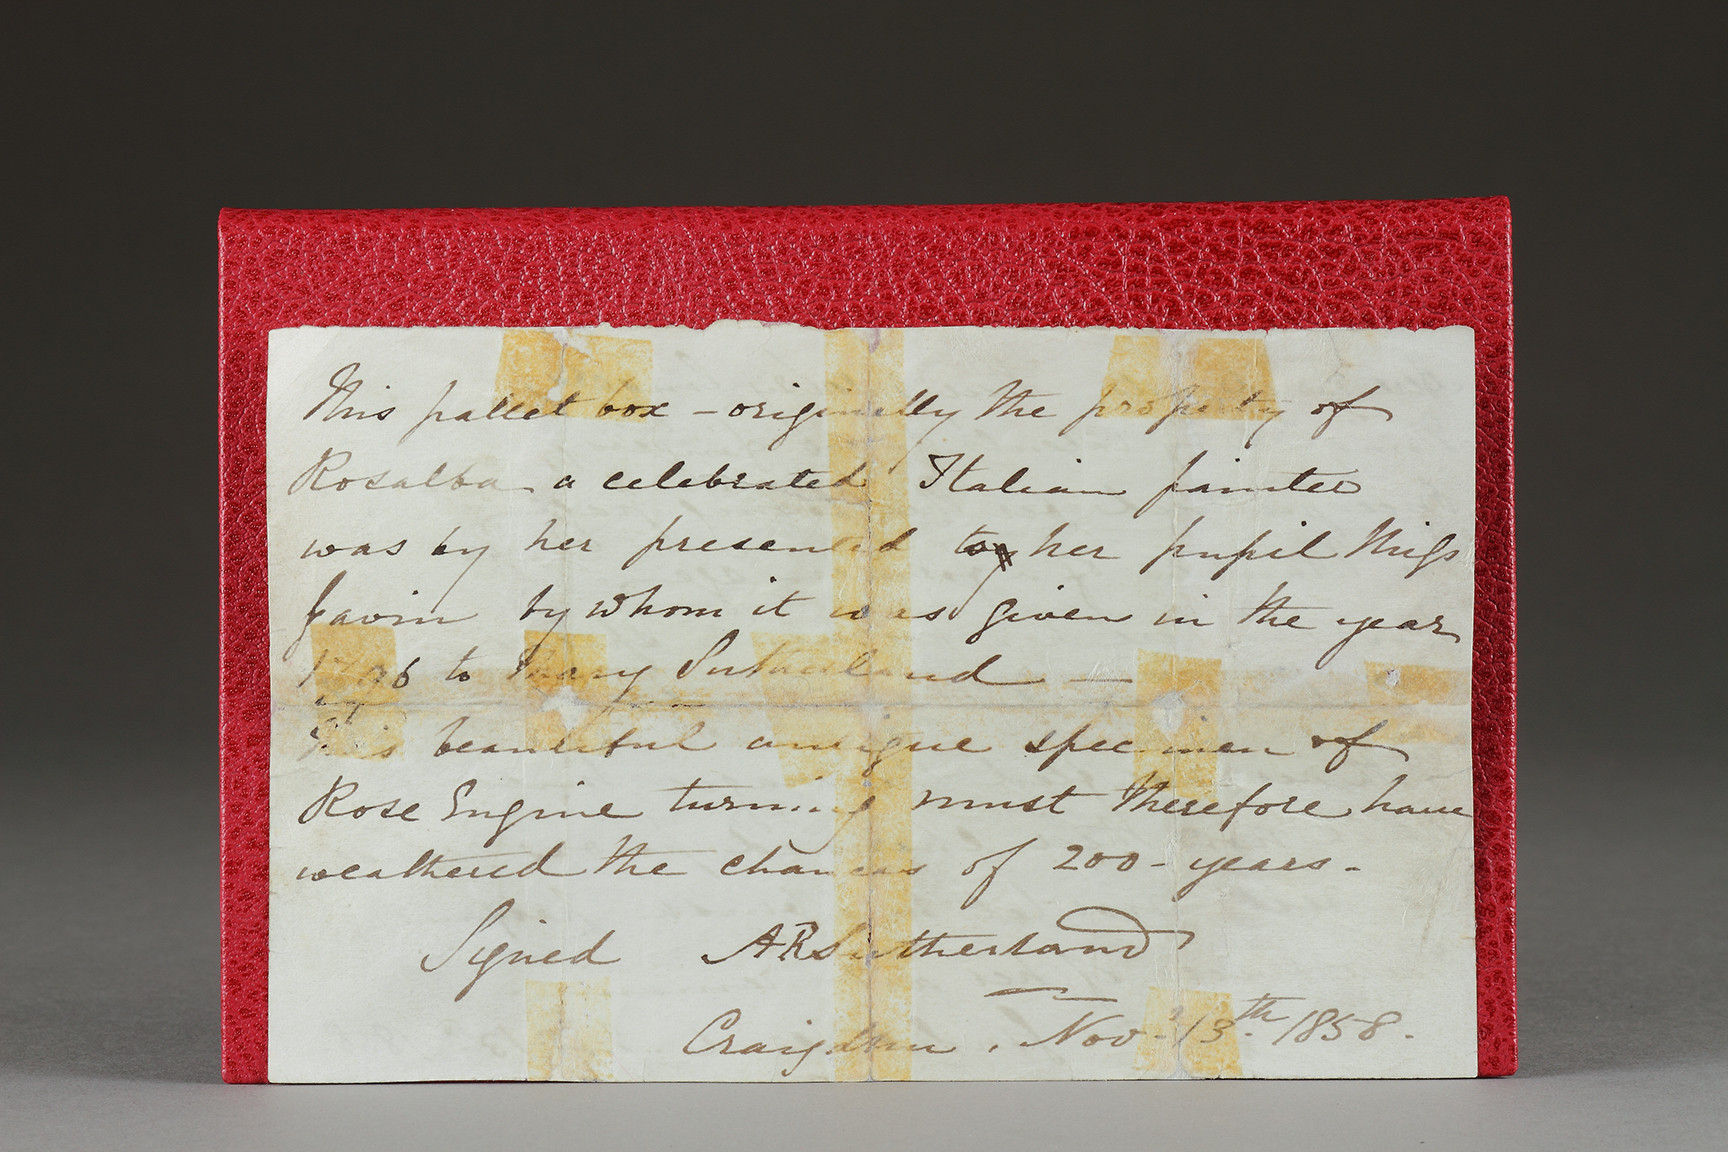 This pallet box – originally the property of
Rosalba a celebrated Italian painter
was by her presented to her pupil Miss
Gavin by whom it was given in the year
1796 to Mary Sutherland —
This beautiful antique specimen of
Rose Engine turning must therefore have
weathered the chances of 200 - years -
Signed ARSutherland
Nov - 13th 1858.